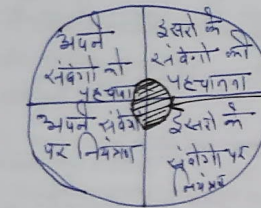 अपने
संवेगो को
पहचानना
दूसरो के
संवेगो को
पहचानना
अपने संवेगो
पर नियंत्रण
दूसरो के
संवेगो पर
नियंत्रण